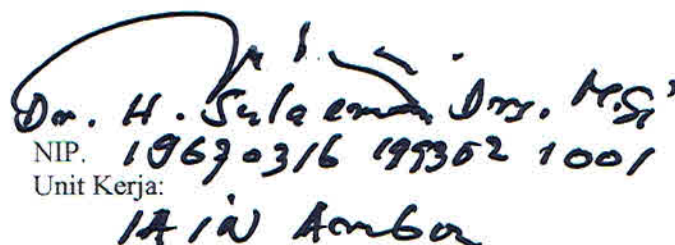 Dr. H. Sulaeman, Drs. M.Si
NIP. 19670316 199302 1001
Unit Kerja:
IAIN Ambon